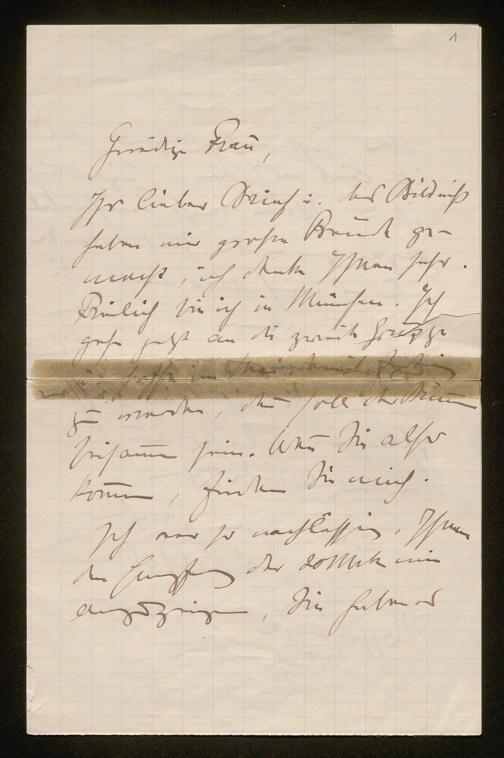 1
Gnädige Frau,
Ihr lieber Brief u. das Bildniß
haben mir große Freude ge-
macht, ich danke Ihnen sehr.
Freilich bin ich in München. Ich
gehe jetzt an die zweite Gruppe
hoffe im
zu werden, dann soll der
beisammen sein. Wenn Sie also
kommen, finden Sie mich.
Ich war so nachlässig, Ihnen
den Empfang der nicht
anzuzeigen, Sie haben